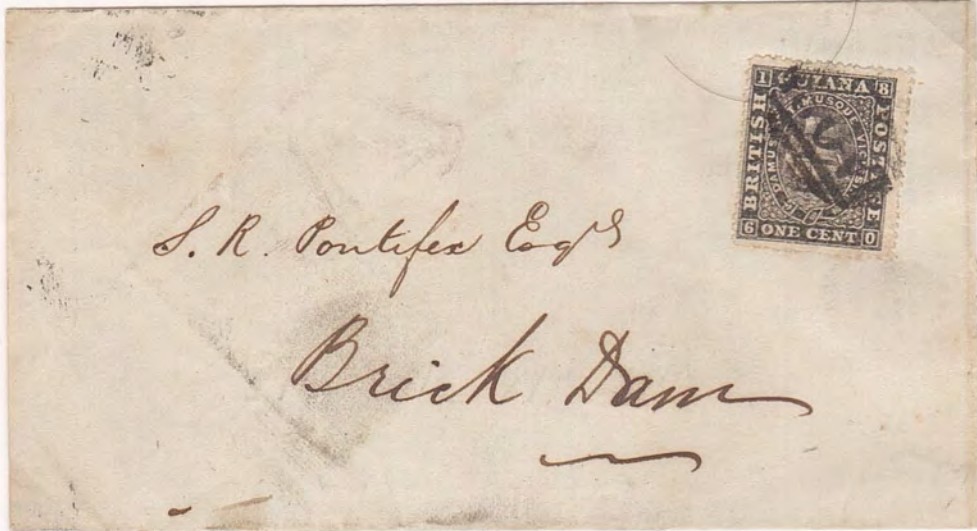 1 GUIANA 8
BRITISH
POSTAGE
DAMUS PETIMUSQUE VICISSIM
6 ONE CENT 0
S. R. Pontifex Esqr
Brick Dam